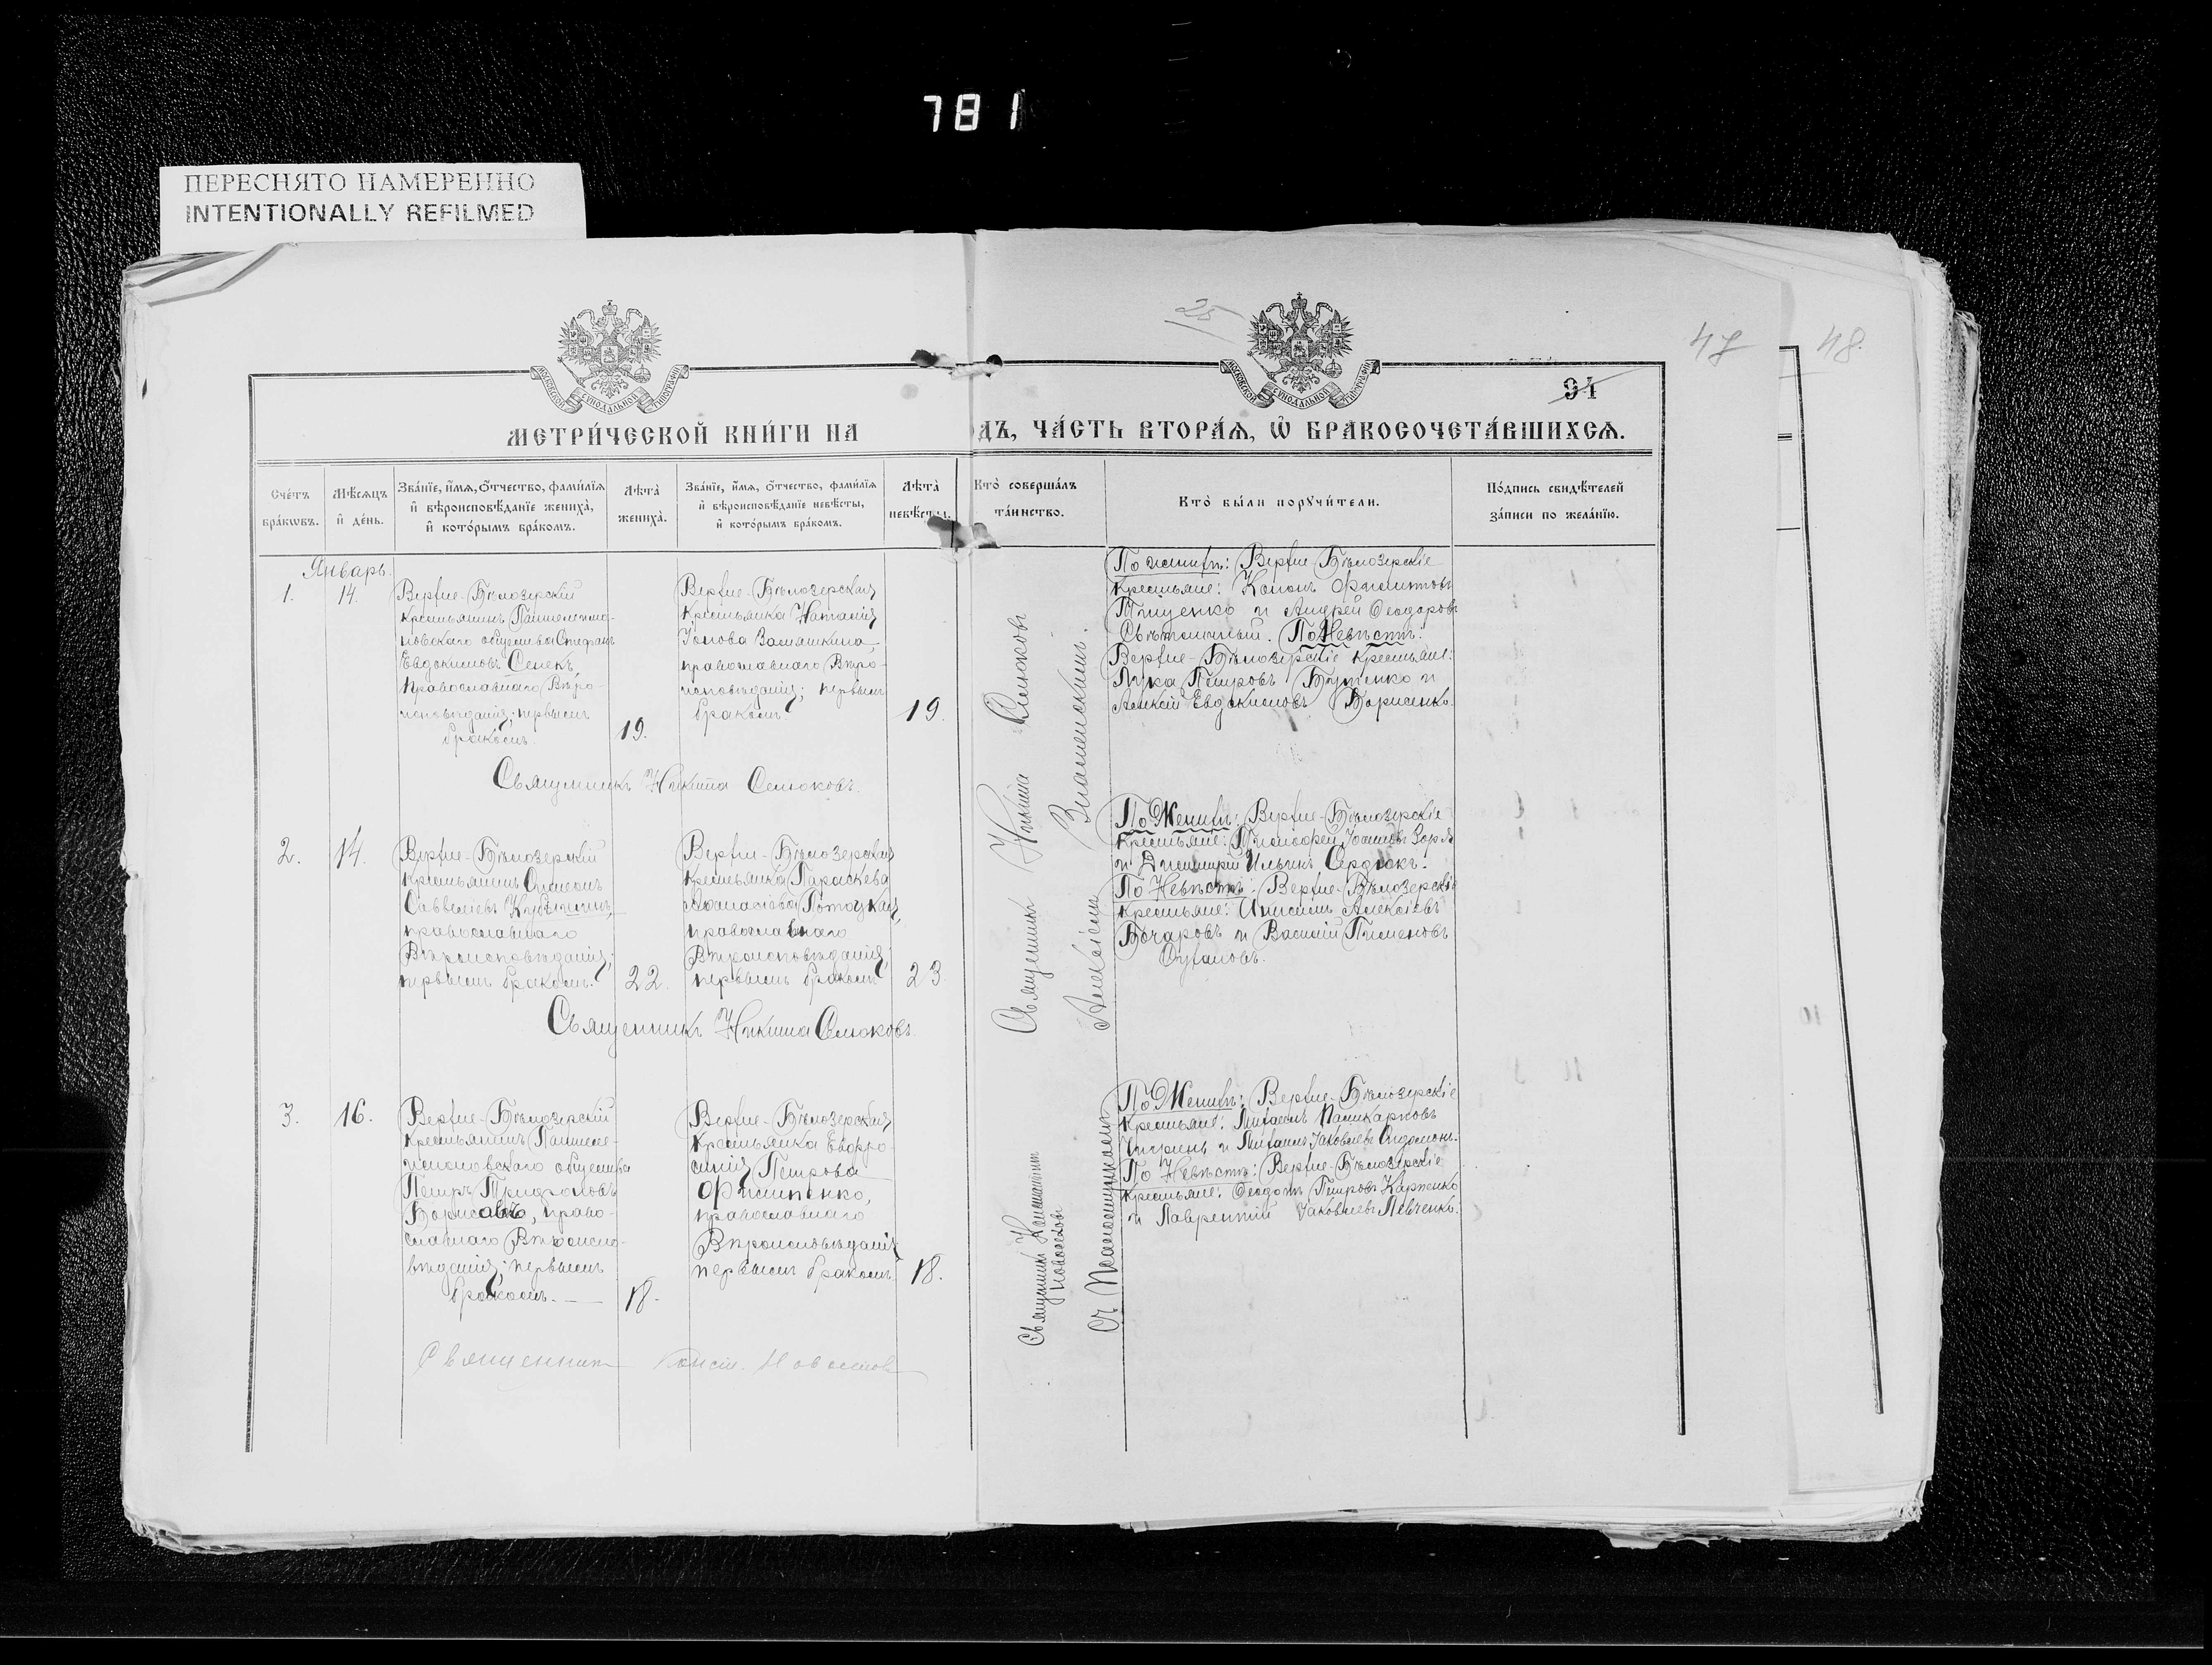 781
ПЕРЕСНЯТО НАМЕРЕННО
INTENTIONALLY REFILMED
25
47
48.
94
МЕТРИ́ЧЕСКОЙ КНИ́ГИ НА
ДЪ, ЧА́СТЬ ВТОРА́Ѧ, Ѡ҆ БРАКОСОЧЕТА́ВШИХСѦ.
Сче́тъ бра́кѡвъ.
Мѣ́сѧцъ и҆ де́нь.
Зва́нїе, и҆́мѧ, ѻ҆́тчество, фами́лїѧ
и҆ вѣроисповѣ́данїе жениха̀,
и҆ кото́рымъ бра́комъ.
Лѣта̀
жениха̀.
Зва́нїе, и҆́мѧ, ѻ҆́тчество, фами́лїѧ
и҆ вѣроисповѣ́данїе невѣ́сты,
и҆ кото́рымъ бра́комъ.
Лѣта̀
невѣ́сты.
Кто̀ соверша́лъ
та́инство.
Кто̀ бы́ли порꙋчи́тели.
По́дпись свидѣ́телей
за́писи по жела́нїю.
Январь.
1.
14.
Верхне-Бѣлозерскій
крестьянинъ
новскаго общества Стефанъ
Евдокимовъ Сенекъ,
Православнаго Вѣро-
исповѣданія; первымъ
бракомъ.
19.
Верхне-Бѣлозерская
крестьянка Наталія
Іонова
православнаго Вѣро-
исповѣданія; первымъ
бракомъ
19.
Священникъ Никита Семюковъ.
Священникъ Никита
Алексіемъ Знаменскимъ.
По женихѣ: Верхне-Бѣлозерскіе
крестьяне: Кононъ
и Андрей Ѳеодоровъ
По Невѣстѣ:
Верхне-Бѣлозерскіе крестьяне:
Лука Петровъ Бутенко и
Алексій Евдокимовъ Борисенко.
2.
14.
Верхне-Бѣлозерскій
крестьянинъ Симеонъ
Савватіевъ
православнаго
Вѣроисповѣданія;
первымъ бракомъ.
22.
Верхне-Бѣлозерская
крестьянка Параскева
Аѳанасіева Потоцкая,
православнаго
Вѣроисповѣданія;
первымъ бракомъ
23.
Священникъ Никита Семюковъ.
По Женихѣ: Верхне-Бѣлозерскіе
крестьяне: Тимоѳей Іоанновъ
и Димитрій Ильинъ Сердюкъ.
По Невѣстѣ: Верхне-Бѣлозерскіе
крестьяне: Алексіевъ
Бочаровъ и Василій Пименовъ
Сухановъ.
3.
16.
Верхне-Бѣлозерскій
крестьянинъ
общества
Петръ Трифоновъ
право-
славнаго Вѣроиспо-
вѣданія; первымъ
бракомъ.
18.
Верхне-Бѣлозерская
крестьянка Евфро-
синія Петрова
Филипенко,
православнаго
Вѣроисповѣданія
первымъ бракомъ
18.
Священникъ Конст.
Священникъ Константинъ
съ Псаломщикомъ
По Женихѣ: Верхне-Бѣлозерскіе
крестьяне: Михаилъ Поликарповъ
и Яковлевъ
По Невѣстѣ: Верхне-Бѣлозерскіе
крестьяне: Ѳеодотъ Петровъ Карпенко
и Лаврентій Яковлевъ Левченко.